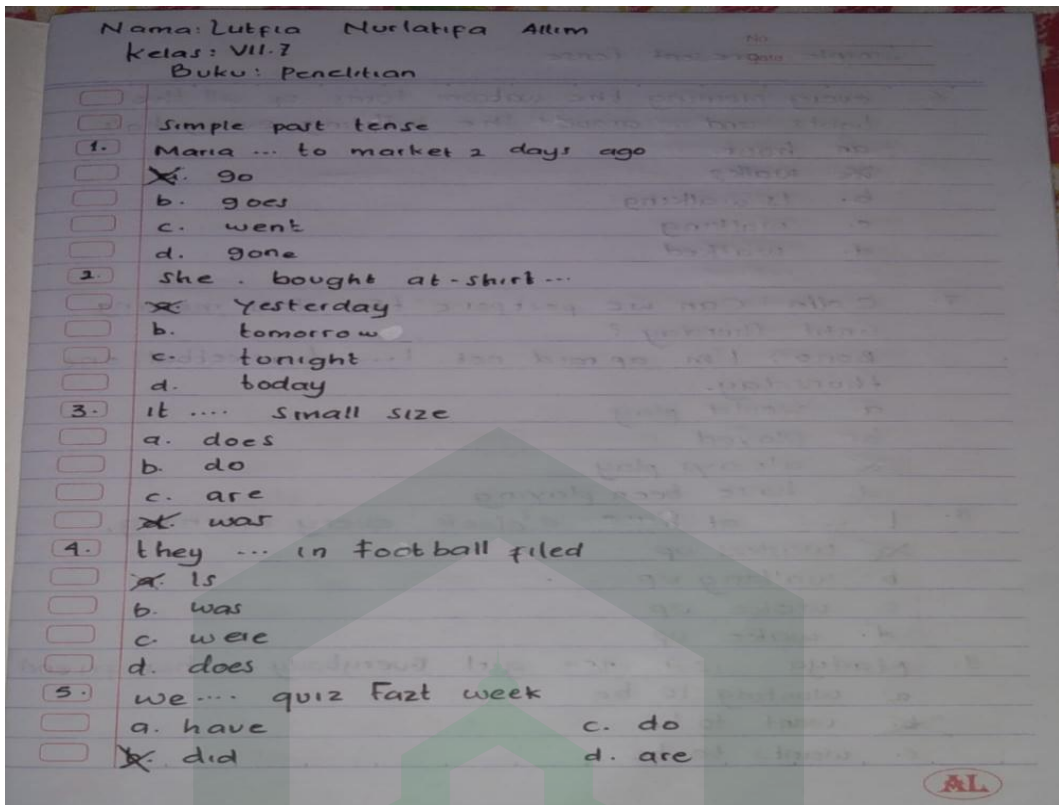 Nama: Lutfia Nurlatifa Allim
Kelas: VII.7
Buku: Penelitian
No
Date
Simple past tense
1. Maria ... to market 2 days ago
a. go
b. goes
c. went
d. gone
2. She . bought at-shirt...
a. Yesterday
b. tomorrow
c. tonight
d. today
3. it .... small size
a. does
b. do
c. are
d. was
4. they ... in football filed
a. Is
b. was
c. were
d. does
5. we .... quiz Fazt week
a. have c. do
b. did d. are
AL